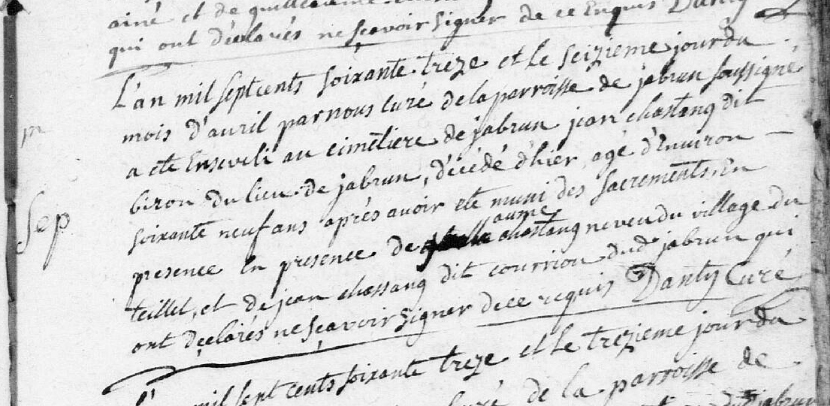 ainé et de guillaume
qui ont déclarés ne sçavoir signer de ce Enquis Danty
L'an mil septcents soixante treze et le seizieme jour du
mois d'avril par nous curé de la parroisse de jabrun soussigné
a eté Enseveli au cimetiere de jabrun jean chastang dit
biron du lieu de jabrun, décédé d'hier, agé d'Environ
Sep
soixante neuf ans après avoir eté muni des sacrements En
presence En presence de aume chastang neveu du village du
teillet, et de jean chassang dit courriou dud jabrun qui
ont déclarés ne sçavoir signer de ce requis Danty Curé
L'an mil sept cents soixante treze et le trezieme jour du
curé de la parroisse de
jabrun